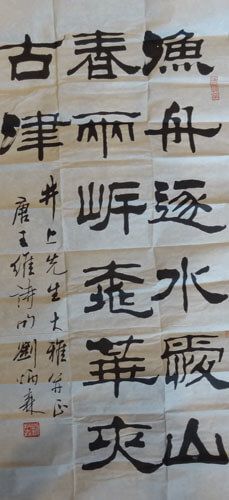 漁舟逐水愛山
春兩岸桃華夾
古津
井上先生大雅并正
唐王維詩句劉炳森